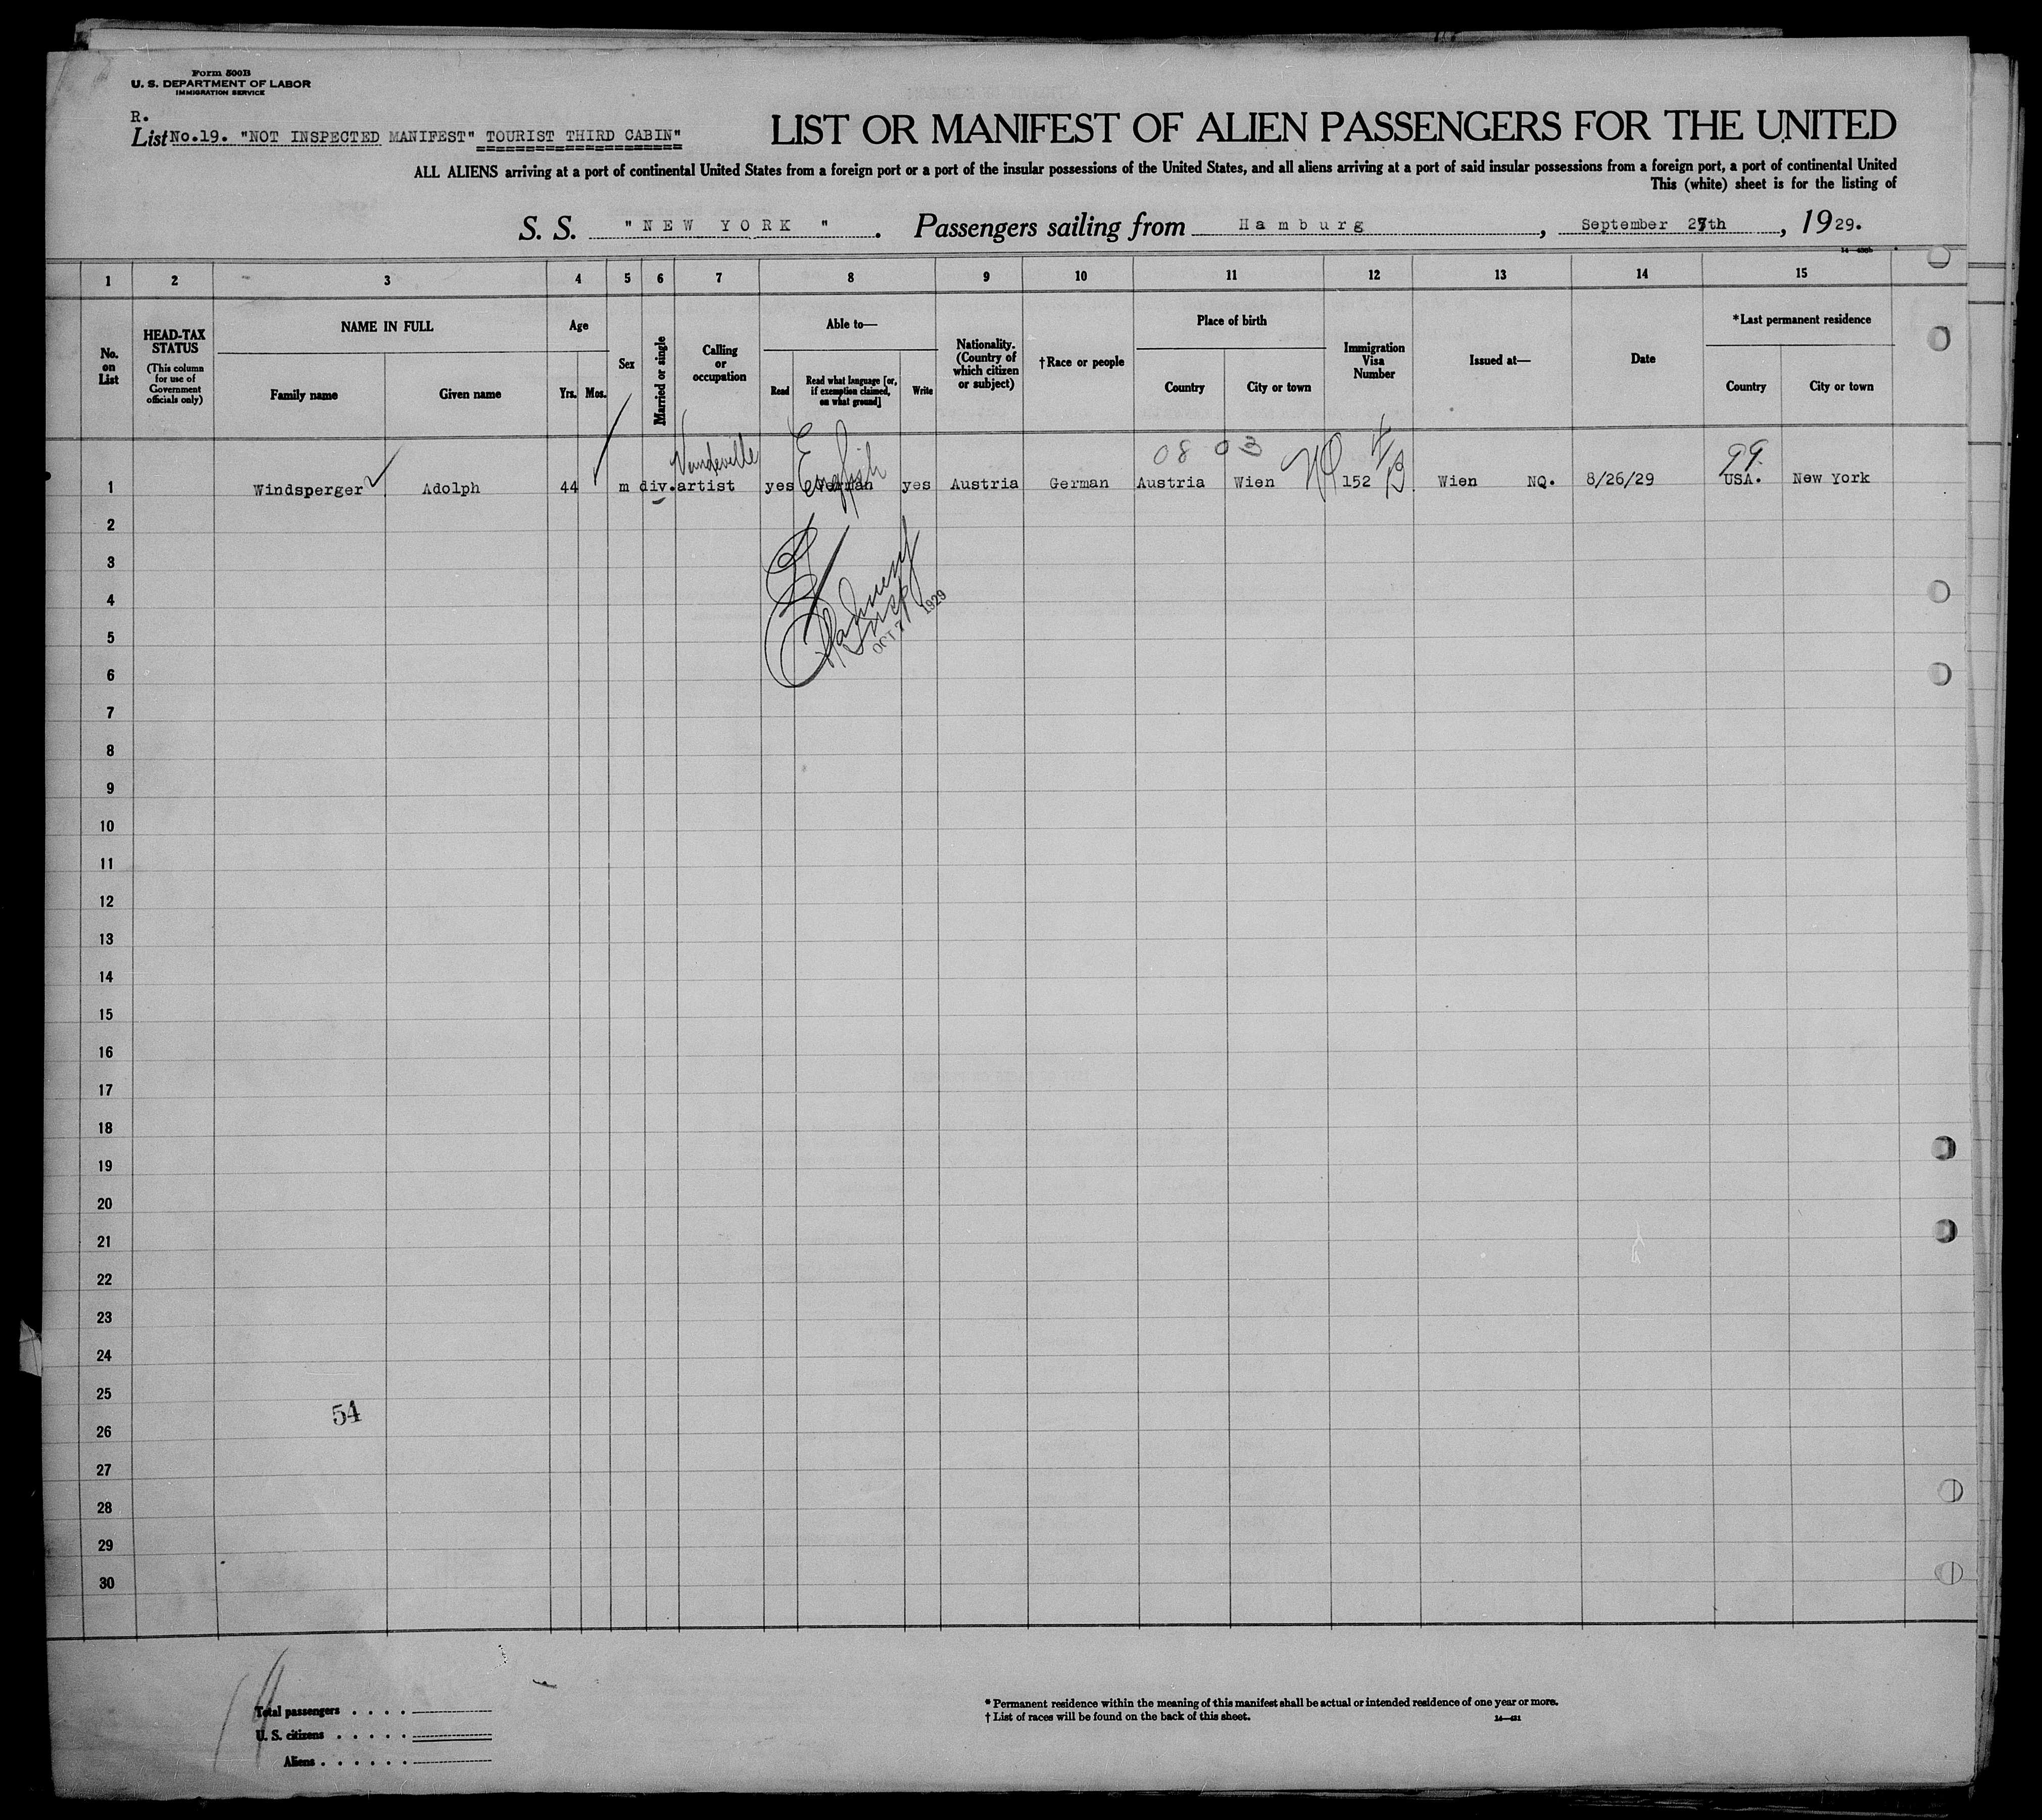 Form 500B
U. S. DEPARTMENT OF LABOR
IMMIGRATION SERVICE
R.
List No.19. "NOT INSPECTED MANIFEST" TOURIST THIRD CABIN"
LIST OR MANIFEST OF ALIEN PASSENGERS FOR THE UNITED
ALL ALIENS arriving at a port of continental United States from a foreign port or a port of the insular possessions of the United States, and all aliens arriving at a port of said insular possessions from a foreign port, a port of continental United
This (white) sheet is for the listing of
S. S. "NEW YORK". Passengers sailing from Hamburg, September 27th, 1929.
1 2 3 4 5 6 7 8 9 10 11 12 13 14 15
No. on List
HEAD-TAX STATUS
(This column for use of Government officials only)
NAME IN FULL
Family name Given name
Age
Yrs. Mos.
Sex
Married or single
Calling or occupation
Able to—
Read Read what language [or, if exemption claimed, on what ground] Write
Nationality. (Country of which citizen or subject)
†Race or people
Place of birth
Country City or town
Immigration Visa Number
Issued at—
Date
*Last permanent residence
Country City or town
Vaudeville English 08 03 99
1 Windsperger Adolph 44 m div. artist yes German yes Austria German Austria Wien 152 Wien NQ. 8/26/29 USA. New York
2
3
4
OCT 7 1929
5
6
7
8
9
10
11
12
13
14
15
16
17
18
19
20
21
22
23
24
25
54
26
27
28
29
30
Total passengers
U. S. citizens
Aliens
* Permanent residence within the meaning of this manifest shall be actual or intended residence of one year or more.
† List of races will be found on the back of this sheet.